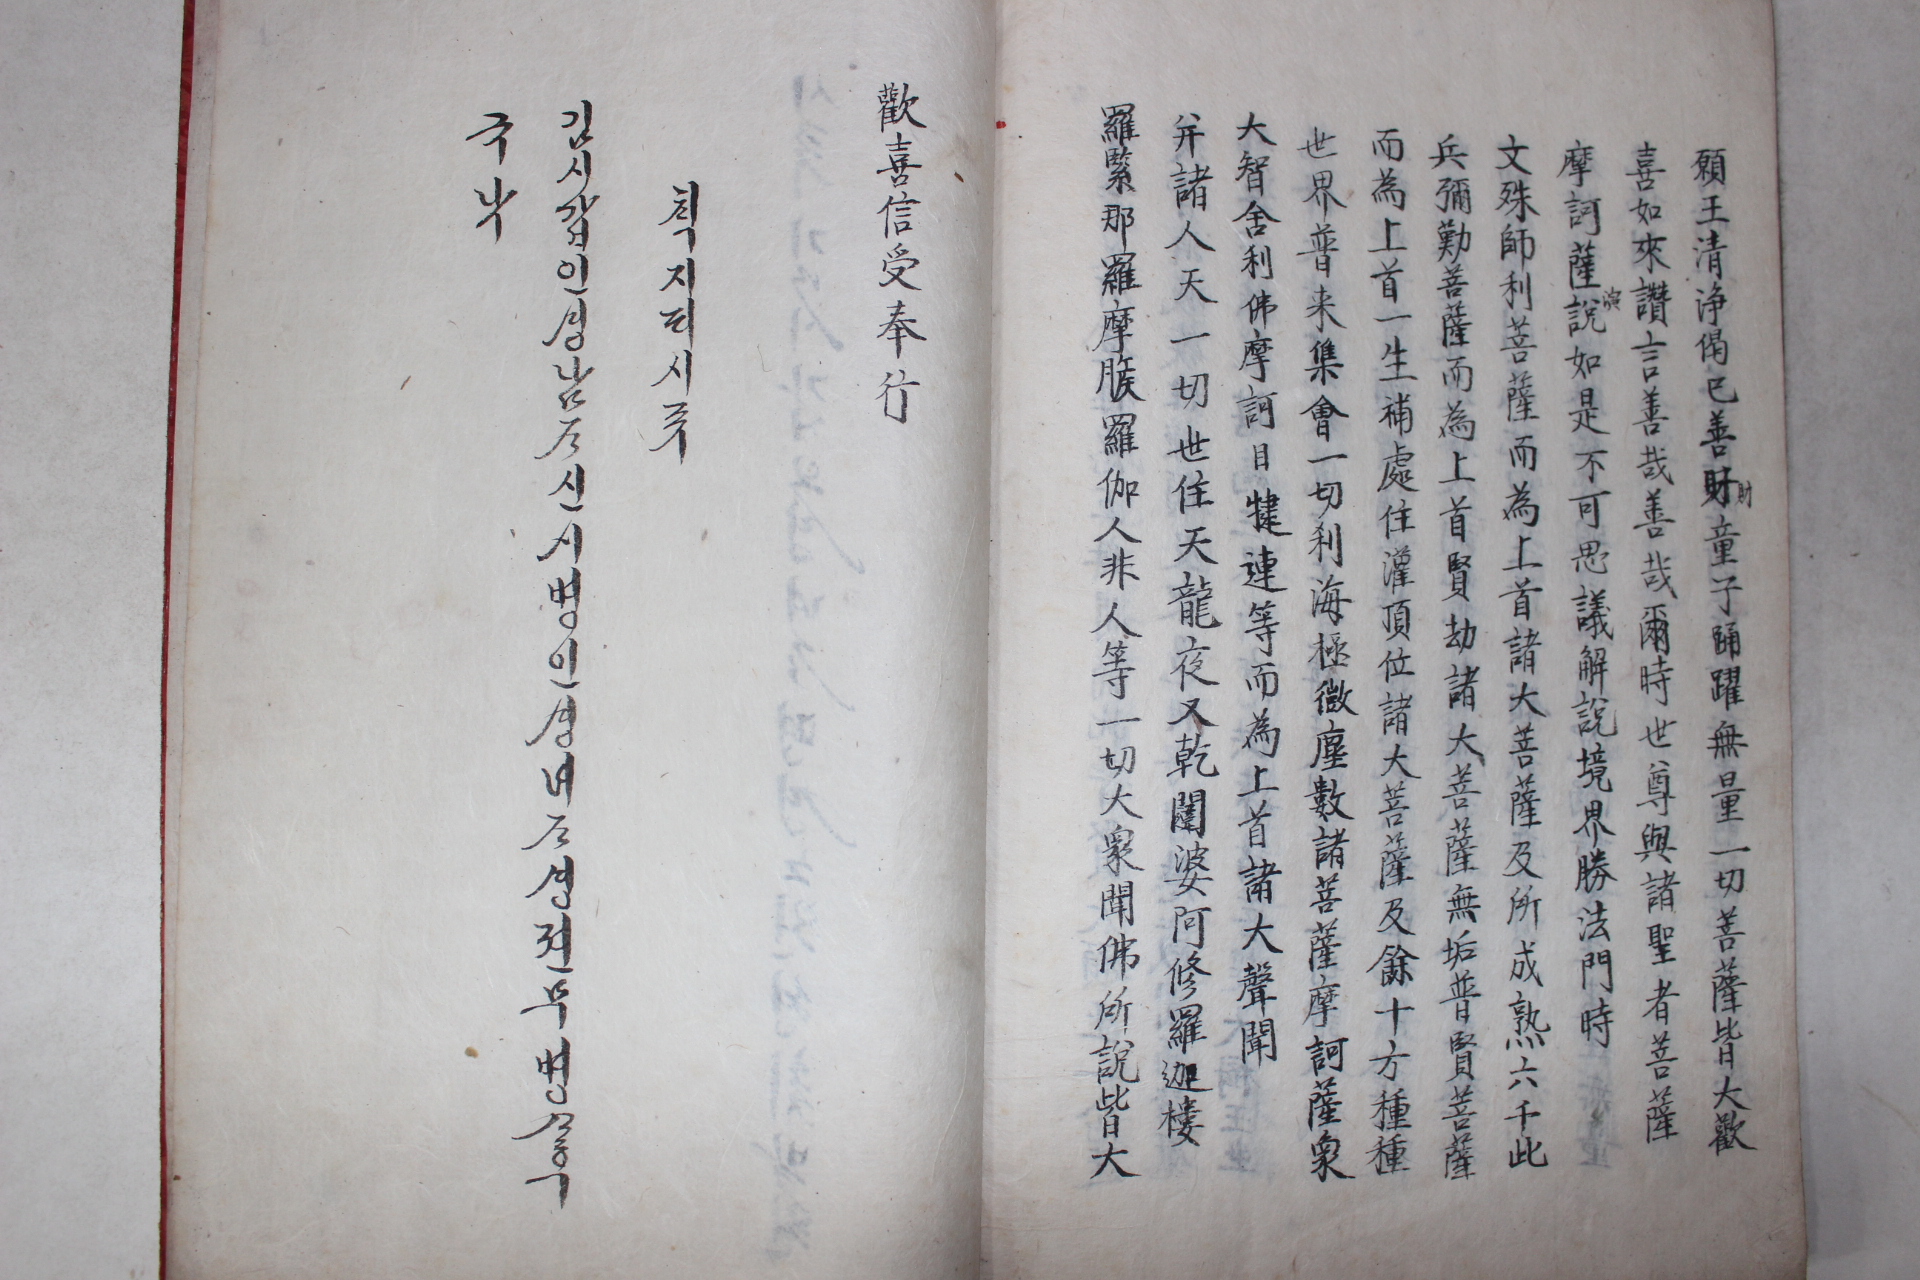 願王清淨偈已善財童子踊躍無量一切菩薩皆大歡
財
喜如來讚言善哉善哉爾時世尊與諸聖者菩薩
摩訶薩說如是不可思議解說境界勝法門時
演
文殊師利菩薩而為上首諸大菩薩及所成熟六千此
兵彌勤菩薩而為上首賢劫諸大菩薩無垢普賢菩薩
而為上首一生補處住灌頂位諸大菩薩及餘十方種種
世界普来集會一切刹海極微塵數諸菩薩摩訶薩衆
大智舍利佛摩訶目犍連等而為上首諸大聲聞
并諸人天一切世住天龍夜叉乾闥婆阿修羅迦樓
羅緊那羅摩睺羅伽人非人等一切大衆聞佛所說皆大
歡喜信受奉行
칙지픠시쥬
김시갑인성남즈신시병인성녀즈성젼부병
극낙